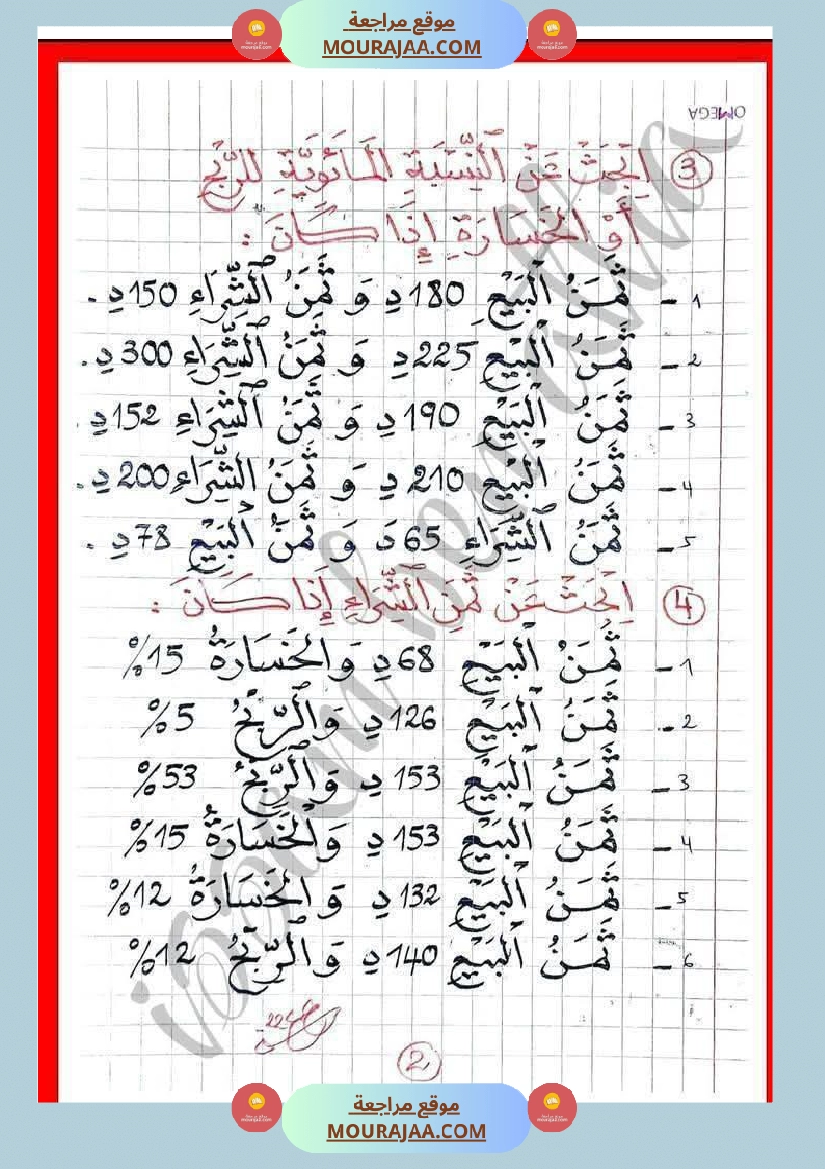 موقع مراجعة
MOURAJAA.COM
OMEGA
③ اِبْحَثْ عَنْ النِّسْبَةِ المَائَوِيَّةِ للرِّبْحِ
أَوْ الخَسَارَةِ إِذَا كَانَ :
1 - ثَمَنُ الْبَيْعِ 180 دِ وَ ثَمَنُ الشِّرَاءِ 150 دِ .
2 - ثَمَنُ الْبَيْعِ 225 دِ وَ ثَمَنُ الشِّرَاءِ 300 دِ .
3 - ثَمَنُ الْبَيْعِ 190 دِ وَ ثَمَنُ الشِّرَاءِ 152 دِ .
4 - ثَمَنُ الْبَيْعِ 210 دِ وَ ثَمَنُ الشِّرَاءِ 200 دِ .
5 - ثَمَنُ الشِّرَاءِ 65 دَ وَ ثَمَنُ الْبَيْعِ 78 دِ .
④ اِبْحَثْ عَنْ ثَمَنِ الشِّرَاءِ إِذَا كَانَ :
1 - ثَمَنُ الْبَيْعِ 68 دِ وَالْخَسَارَةُ 15%
2 - ثَمَنُ الْبَيْعِ 126 دِ وَالرِّبْحُ 5%
3 - ثَمَنُ الْبَيْعِ 153 دِ وَالرِّبْحُ 53%
4 - ثَمَنُ الْبَيْعِ 153 دِ وَالْخَسَارَةُ 15%
5 - ثَمَنُ الْبَيْعِ 132 دِ وَالْخَسَارَةُ 12%
6 - ثَمَنُ الْبَيْعِ 140 دِ وَالرِّبْحُ 12%
②
موقع مراجعة
MOURAJAA.COM